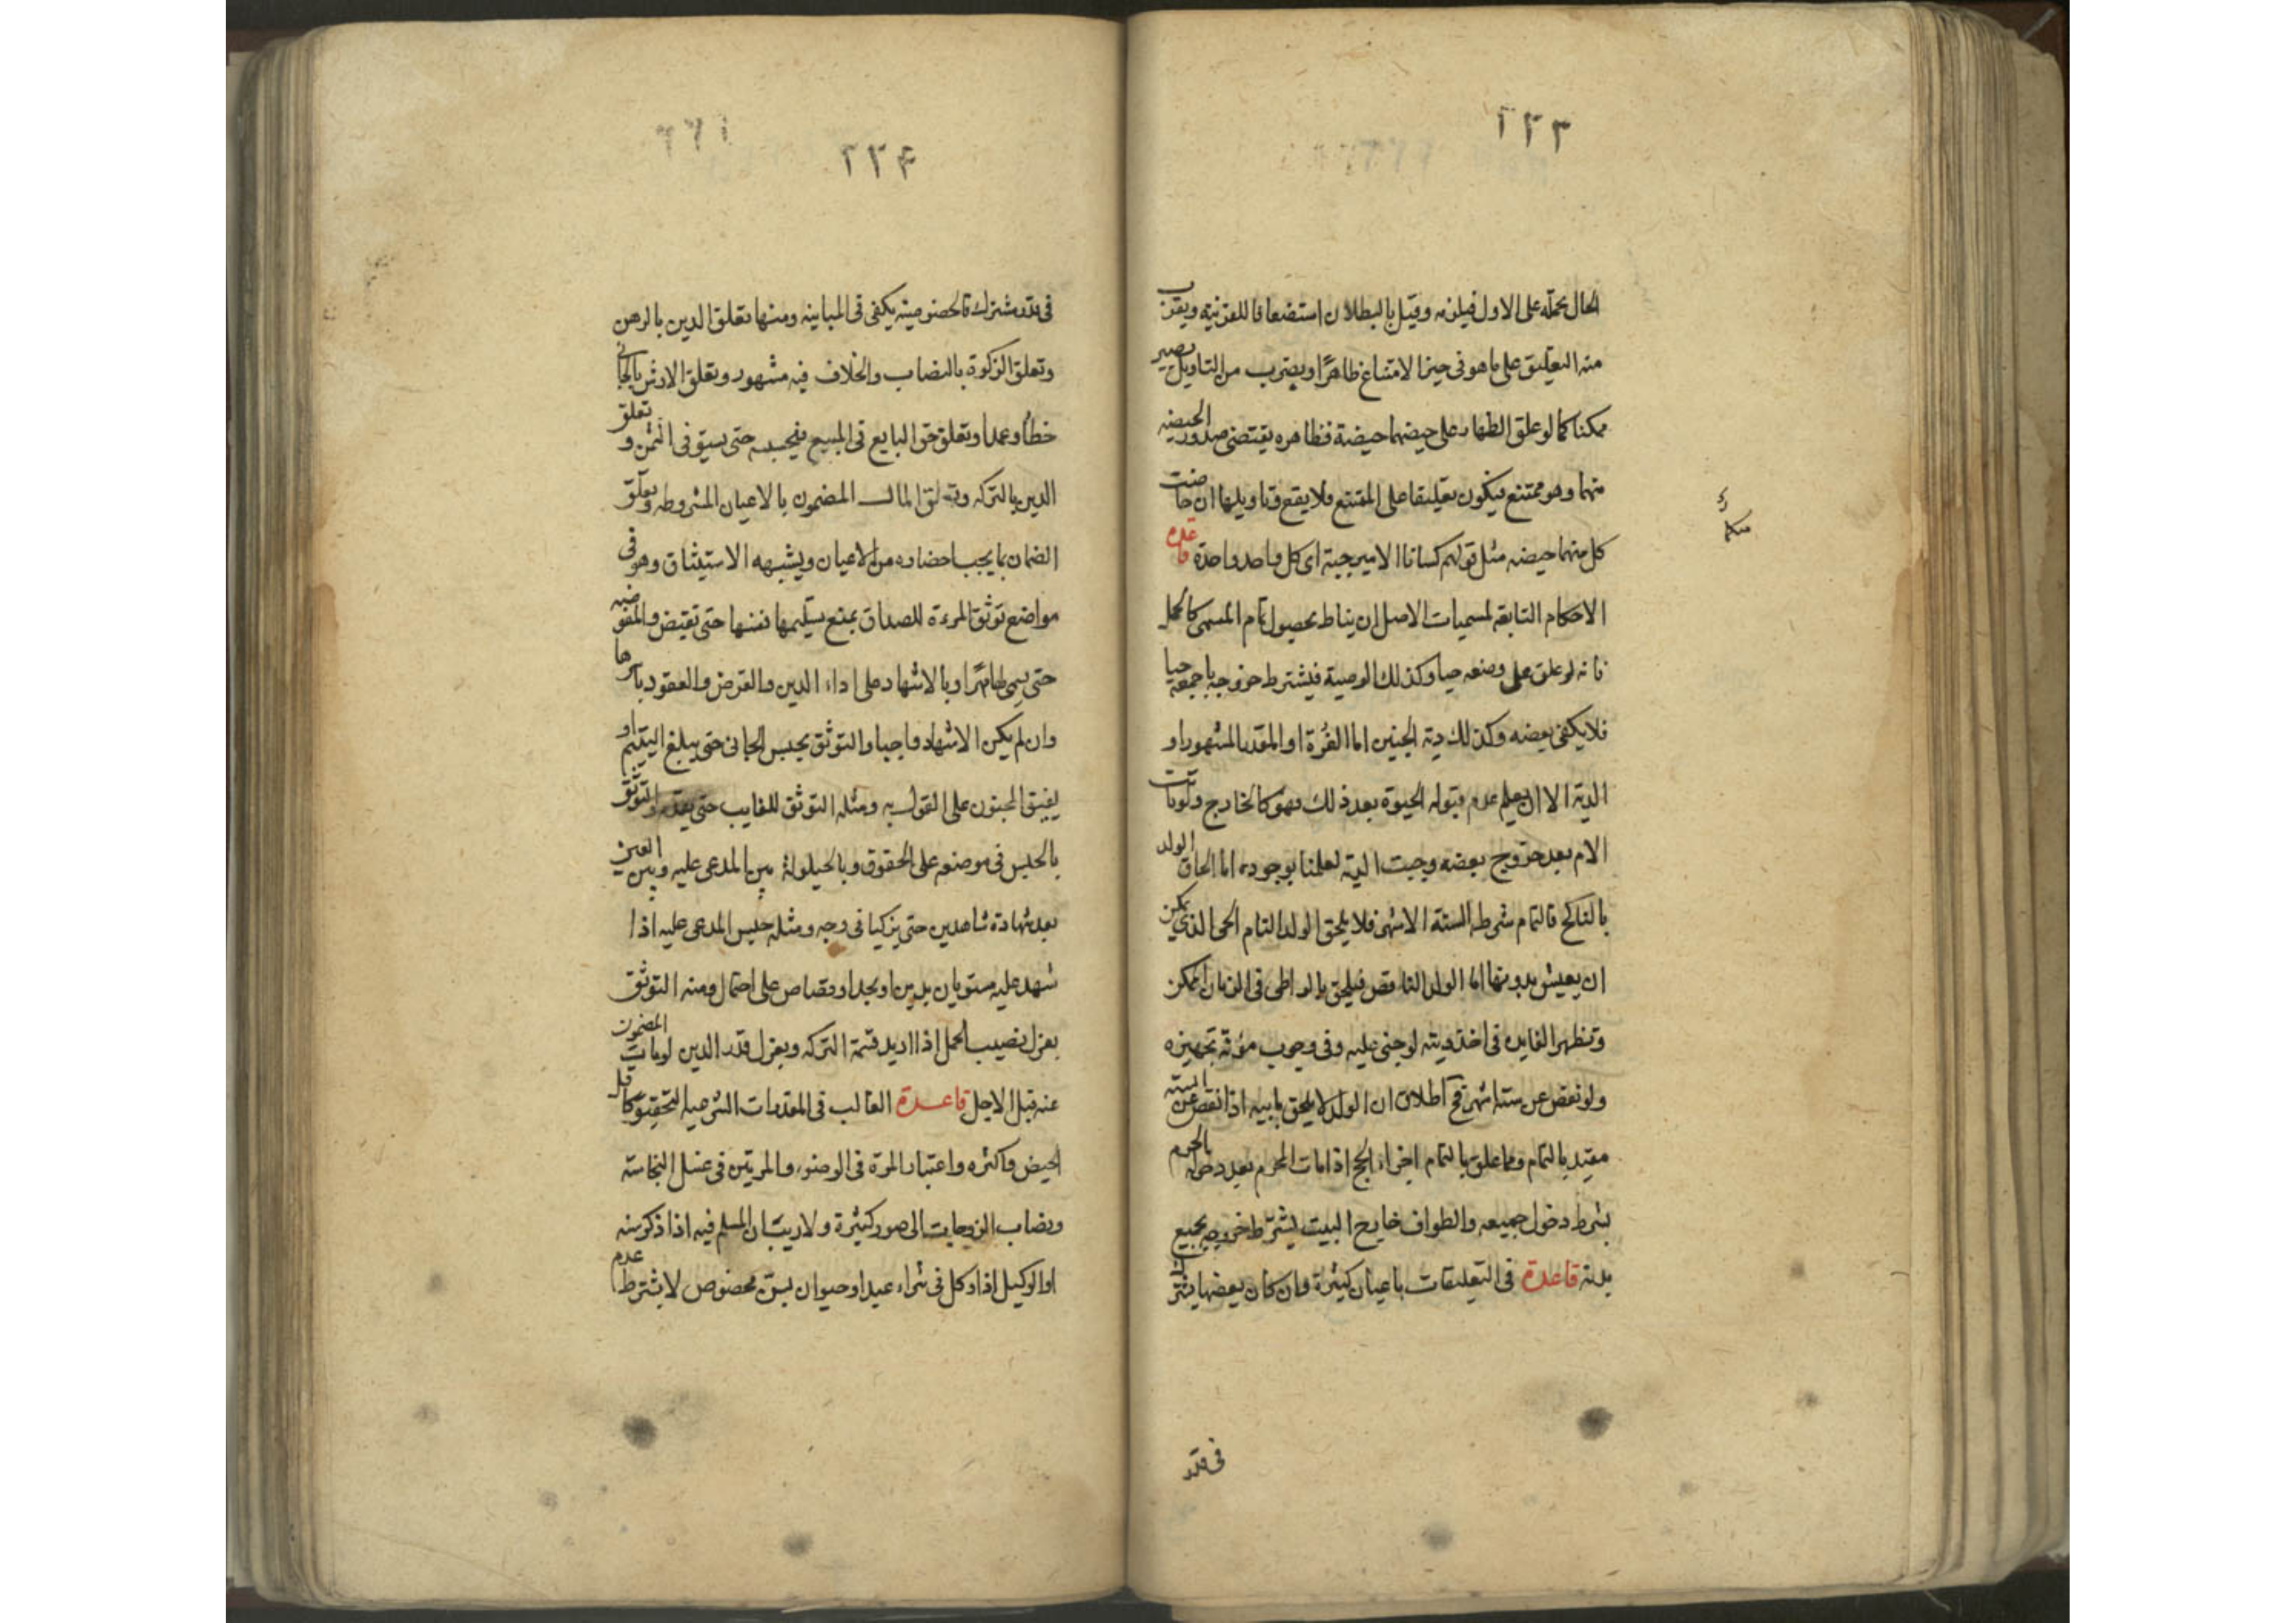 ٢٢٣
الحال يحمله على الاول فيلزمه وقيل بالبطلان استضعافا للقرينة ويقرب
منه التعليق على ما هو في حيز الامتناع ظاهرًا وبضرب من التاويل يصير
ممكنا كما لو علق الظهار على حيضهما حيضة فظاهره يقتضى صدور الحيضه
منهما وهو ممتنع فيكون تعليقا على الممتنع فلا يقع وتاويلها ان حاضت
كل منهما حيضه مثل قولهم كسانا الامير جبة اى كل واحد واحدة قاعده
الاحكام التابعة لمسميات الاصل ان يناط بحصول تمام المسمى كالحمل
فانه لو علق على وضعه حيا وكذلك الوصية فيشترط خروجه باجمعه حيا
فلا يكفى بعضه وكذلك دية الجنين اما الغُرة او المقدر المشهور او
الدية الا ان يعلم عدم قبوله الحيوة بعد ذلك فهو كالخارج ولو ماتت
الام بعد خروج بعضه وجبت الدية لعلمنا بوجوده اما الحاق الولد
بالناكح فالتمام شرطه الستة الاشهر فلا يلحق الولد التام الحى الذي يمكن
ان يعيش بدونها اما الولد الناقص فيلحق بالواطى فى الزمان الممكن
وتظهر الفايده فى اخذ ديته لو جنى عليه وفى وجوب مؤنة تجهيزه
ولو نقص عن ستة اشهر فح اطلاق ان الولد لا يلحق بابيه اذا نقص عن الستة
مقيد بالتمام ومما علق بالتمام اجزاء الحج اذا مات المحرم بعد دخوله الحرم
بشرط دخول جميعه والطواف خارج البيت يشترط خروجه بجميع
بدنه قاعدة فى التعليقات باعيان كثيرة وان كان بعضها يشترك
فى قدر
٢٢٤
فى قدر مشترك فالخصوصية يكفى فى المباينه ومنها تعلق الدين بالرهن
وتعلق الزكوة بالنصاب والخلاف فيه مشهور وتعلق الارش بالجانى
خطأ وعمدا وتعلق حق البايع فى المبيع فيحبسه حتى يستوفى الثمن وتعلق
الدين بالتركه وتعلق المال المضمون بالاعيان المشروطه وتعلق
الضمان بما يجب احضاره من الاعيان ويشبهه الاستيثاق وهو فى
مواضع توثق المرءة للصداق بمنع تسليمها نفسها حتى تقبض والمفوضه
حتى يسمى لها مهرًا وبالاشهاد على اداء الدين والقرض والعقود باسرها
وان لم يكن الاشهاد واجبا والتوثق بحبس الجانى حتى يبلغ اليتيم او
يفيق المجنون على القول به ومثله التوثق للغايب حتى يقدم والتوثق
بالحبس فى موضعه على الحقوق وبالحيلولة بين المدعى عليه وبين العين
بعد شهادة شاهدين حتى يزكيا فى وجه ومثله حبس المدعى عليه اذا
شهد عليه مستويان بدين او بحد او قصاص على احتمال ومنه التوثق
بعزل نصيب الحمل اذا اريد قسمة التركه وبعزل قدر الدين لو مات المضمون
عنه قبل الاجل قاعدة الغالب فى المقدرات الشرعية التحقيق كاقل
الحيض واكثره واعتبار المرة فى الوضوء والمرتين فى غسل النجاسة
ونصاب الزوجات الى صور كثيرة ولا ريب ان المسلم فيه اذا ذكر سنه
او الوكيل اذا وكل فى شراء عبد او حيوان بسن مخصوص لا يشترط عدم